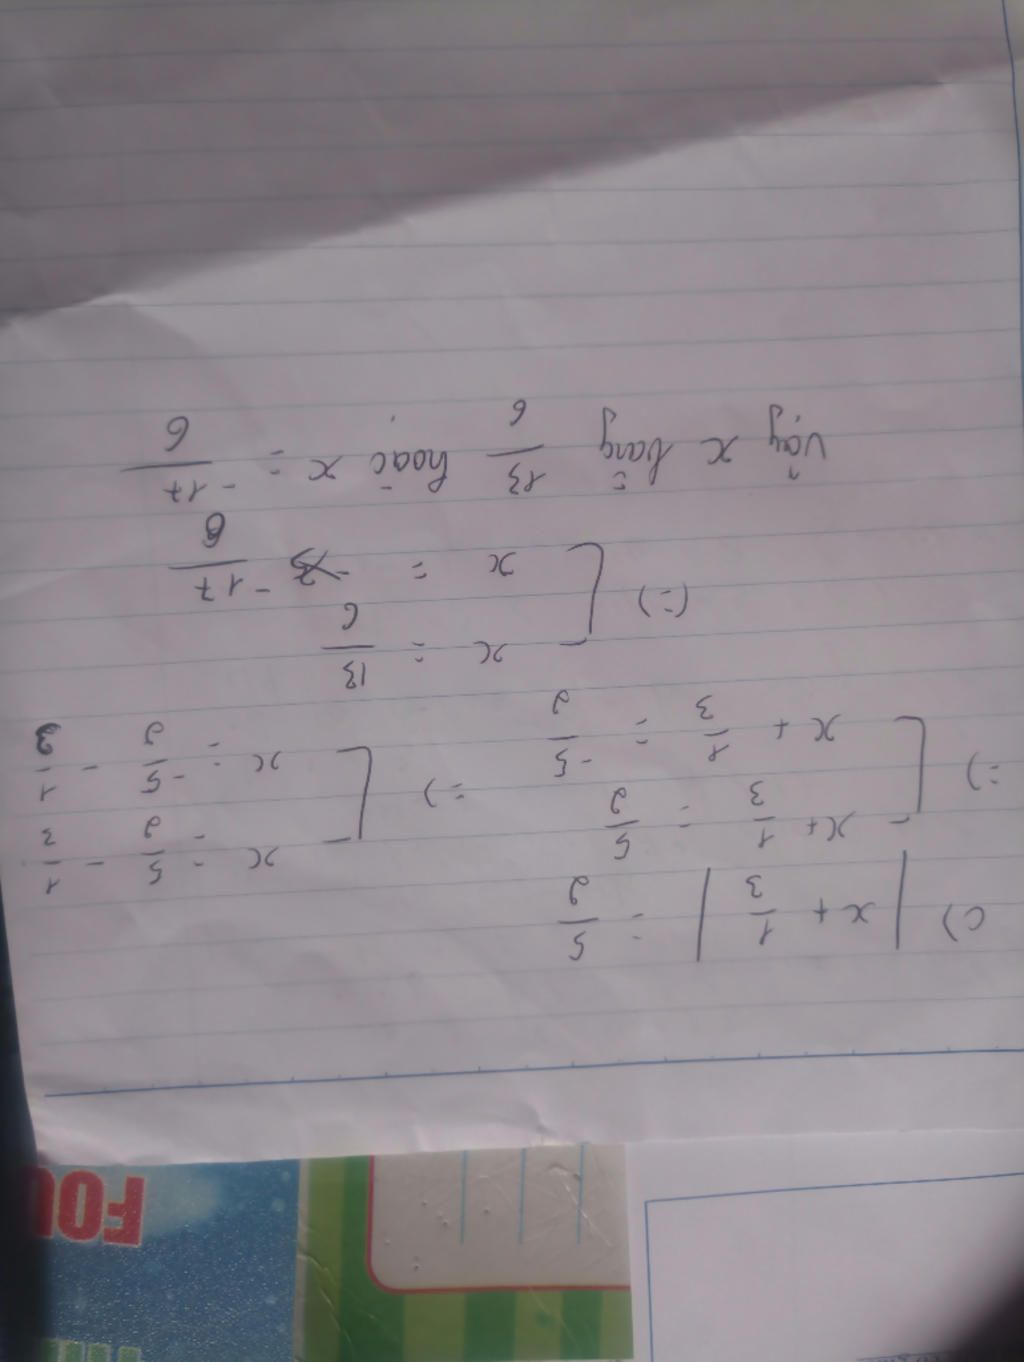 c) |x + 1/3| = 5/2
=) [ x + 1/3 = 5/2 =) [ x = 5/2 - 1/3
x + 1/3 = -5/2 x = -5/2 - 1/3
(=) [ x = 13/6
x = -17/6
Vậy x bằng 13/6 hoặc x = -17/6
FOU